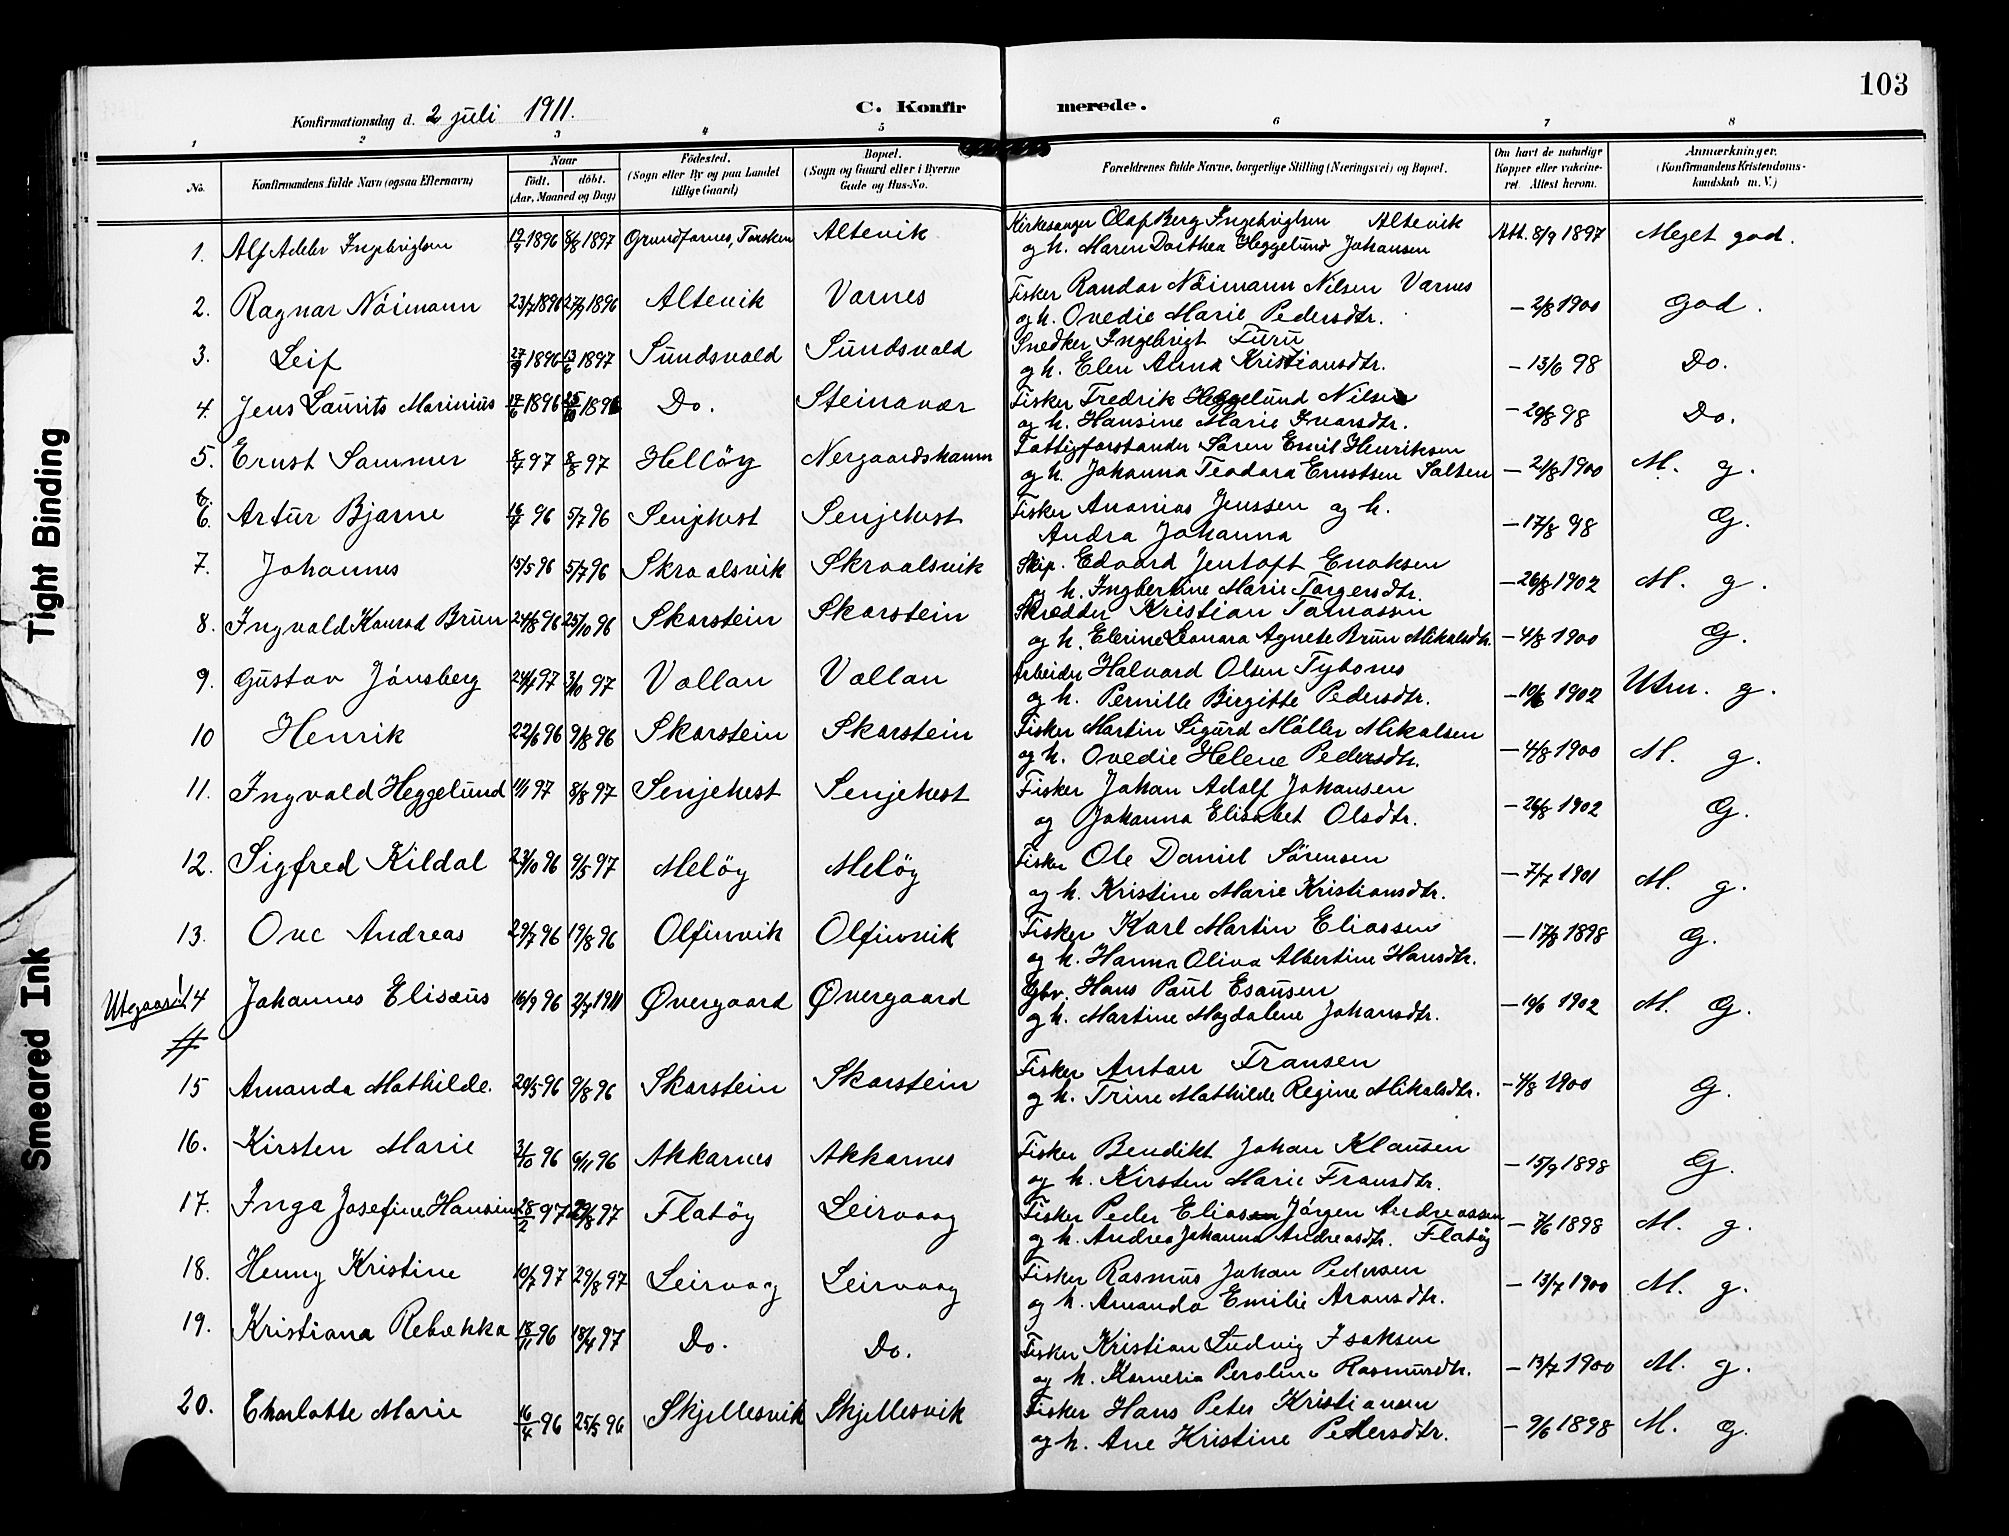 103
Konfirmationsdag d. 2 juli 1911. C. Konfirmerede.
1 2 3 4 5 6 7 8
No. Konfirmandens fulde Navn (ogsaa Efternavn) Naar født. døbt. (Aar, Maaned og Dag) Fødested. (Sogn eller By og paa Landet tillige Gaard) Bopæl. (Sogn og Gaard eller i Byerne Gade og Hus-No. Forældrenes fulde Navne, borgerlige Stilling (Næringsvei) og Bopæl. Om havt de naturlige Kopper eller vakcineret. Attest herom. Anmærkninger. (Konfirmandens Kristendomskundskab m. V.)
1. Alf Adeler Ingebrigtsen 19/9 1896 8/8 1897 Grundfarnes, Torsken Altevik Kirkesanger Olaf Berg Ingebrigtsen Altevik Att. 8/9 1897 Meget god.
og h. Maren Dorthea Heggelund Johansen
2. Ragnar Nöimann 23/7 1896 27/9 1896 Altevik Varnes Fisker Randor Nöimann Nilsen Varnes – 2/8 1900 God.
og h. Ovedie Marie Pedersdtr.
3. Leif 27/9 1896 13/6 1897 Sundsvold Sundsvold Snedker Ingebrigt Furu – 13/6 98 Do.
og h. Elen Anna Kristiansdtr.
4. Jens Laurits Marinius 17/6 1896 25/10 1896 Do. Steinavær Fisker Fredrik Heggelund Nilsen – 20/8 98 Do.
og h. Hansine Marie Ivarsdtr.
5. Ernst Sommer 8/7 97 8/8 97 Hellöy Nergaardshamn Fattigforstander Sören Emil Henriksen
og h. Johanna Teodora Ernstsen Salten – 21/8 1900 M. g.
6. Artur Bjarne 16/7 96 5/7 96 Senjehest Senjehest Fisker Ananias Jenssen og h.
Andra Johanna – 17/8 98 G.
7. Johannes 15/5 96 5/7 96 Skrolsvik Skrolsvik Skip. Edvard Jentoft Enoksen
og h. Ingbertine Marie Torgersdtr. – 26/8 1902 M. g.
8. Ingvald Konrad Brun 24/8 96 25/10 96 Skarstein Skarstein Skrædder Kristian Tomassen
og h. Elerine Leonara Agnete Brun Mikalsdtr. – 4/8 1900 G.
9. Gustav Jönsberg 24/4 97 3/10 97 Vollan Vollan Arbeider Halvard Olsen Tybones
og h. Pernille Birgitte Pedersdtr. – 10/6 1902 Utm. g.
10 Henrik 22/6 96 9/8 96 Skarstein Skarstein Fisker Martin Sigurd Møller Mikalsen
og h. Ovedie Helene Pedersdtr. – 4/8 1900 M. g.
11. Ingvald Heggelund 1/1 97 8/8 97 Senjehest Senjehest Fisker Johan Adolf Johansen
og Johanna Elisabet Olsdtr. – 26/8 1902 G.
12. Sigfred Kildal 23/10 96 9/5 97 Melöy Melöy Fisker Ole Daniel Sörensen
og h. Kristine Marie Kristiansdtr. – 7/7 1901 M. g.
13. Ove Andreas 29/7 96 19/8 96 Olfinvik Olfinvik Fisker Karl Martin Eliassen
og h. Hanna Oliva Albertine Hansdtr. – 17/8 1898 G.
14 Johannes Elisæus 16/9 96 2/7 1911 Øvergaard Øvergaard Gbr. Hans Paul Esausen
og h. Martine Magdalene Johansdtr. – 10/6 1902 M. G.
15 Amanda Mathilde. 20/5 96 9/8 96 Skarstein Skarstein Fisker Anton Fransen
og h. Trine Mathilde Regine Mikalsdtr. – 4/8 1900 G.
16. Kirsten Marie 3/10 96 6/11 96 Akkarnes Akkarnes Fisker Bendikt Johan Klausen
og h. Kirsten Marie Fransdtr. – 15/9 1898 G.
17. Inga Josefine Hansine 28/2 97 29/8 97 Flatöy Leirvaag Fisker Peder Elias Jörgen Andreassen
og h. Andrea Johanna Andreasdtr. Flatöy – 7/6 1898 M. g.
18. Henny Kristine 10/7 97 29/8 97 Leirvaag Leirvaag Fisker Rasmus Johan Pedersen
og h. Amanda Emilie Aronsdtr. – 13/7 1900 M. g.
19. Kristiana Rebekka 18/11 96 18/4 97 Do. Do. Fisker Kristian Ludvig Isaksen
og h. Kornelia Persline Rasmusdtr. – 13/7 1900 M. g.
20. Charlotte Marie 16/4 96 25/5 96 Skjellesvik Skjellesvik Fisker Hans Peter Kristiansen
og h. Ane Kristine Pedersdtr. – 9/6 1898 M. G.
Tight Binding
Smeared Ink